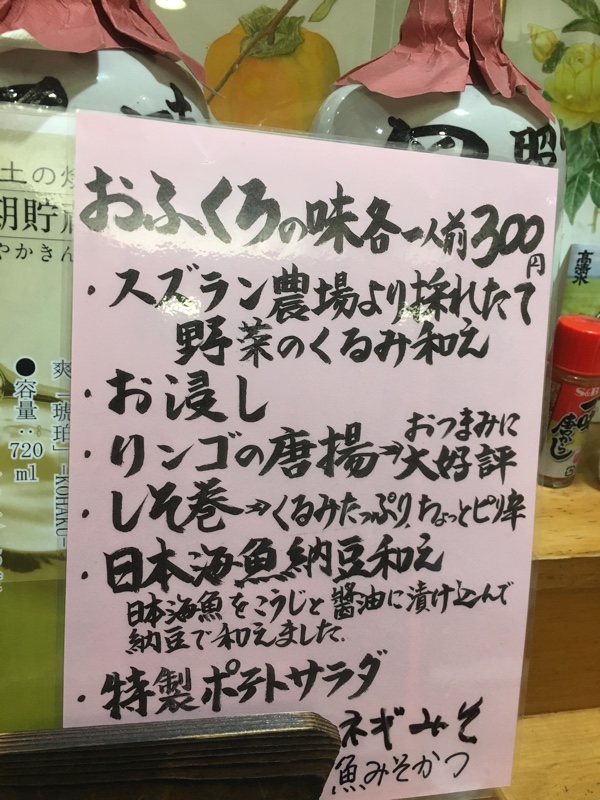 おふくろの味各一人前300円
・スズラン農場より採れたて
野菜のくるみ和え
・お浸し
・リンゴの唐揚→おつまみに
大好評
・しそ巻→くるみたっぷり、ちょっとピリ辛
・日本海魚納豆和え
日本海魚をこうじと醬油に漬け込んで
納豆で和えました。
・特製ポテトサラダ
ネギみそ
魚みそかつ
土の焼
期貯
やかきん
●容量:720ml
爽「琥珀」-KOHAKU-
昭
高清水
S&B
一味
唐がらし